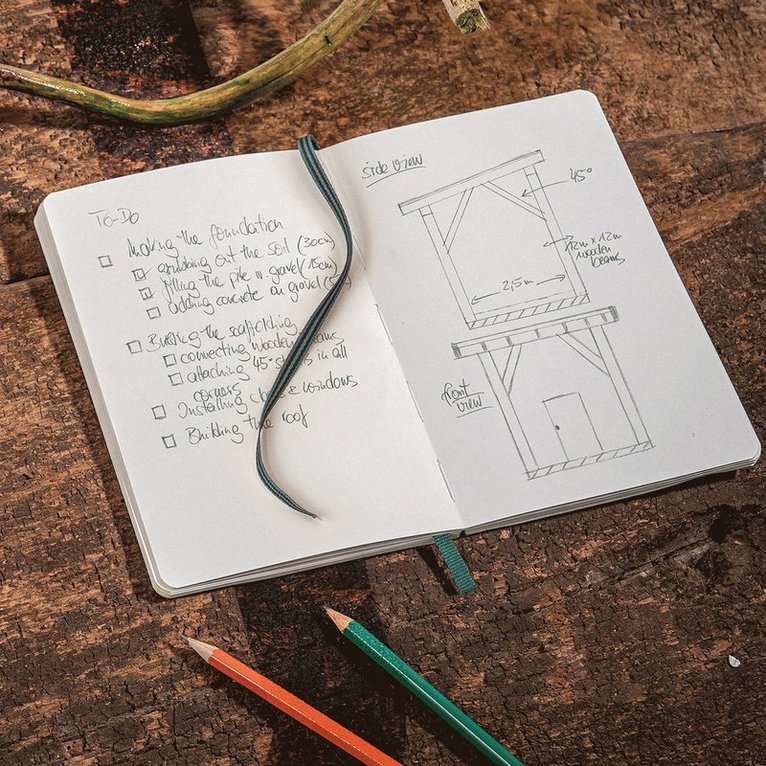 To-Do
Making the foundation
grubbing out the soil (30cm)
filling the pile w gravel (15cm)
adding concrete on gravel (
Building the scaffolding
connecting wooden beams
attaching 45° in all
corners
Installing & windows
Building the roof
side view
45°
12m x 12m
wooden
beams
2,5m
front
view